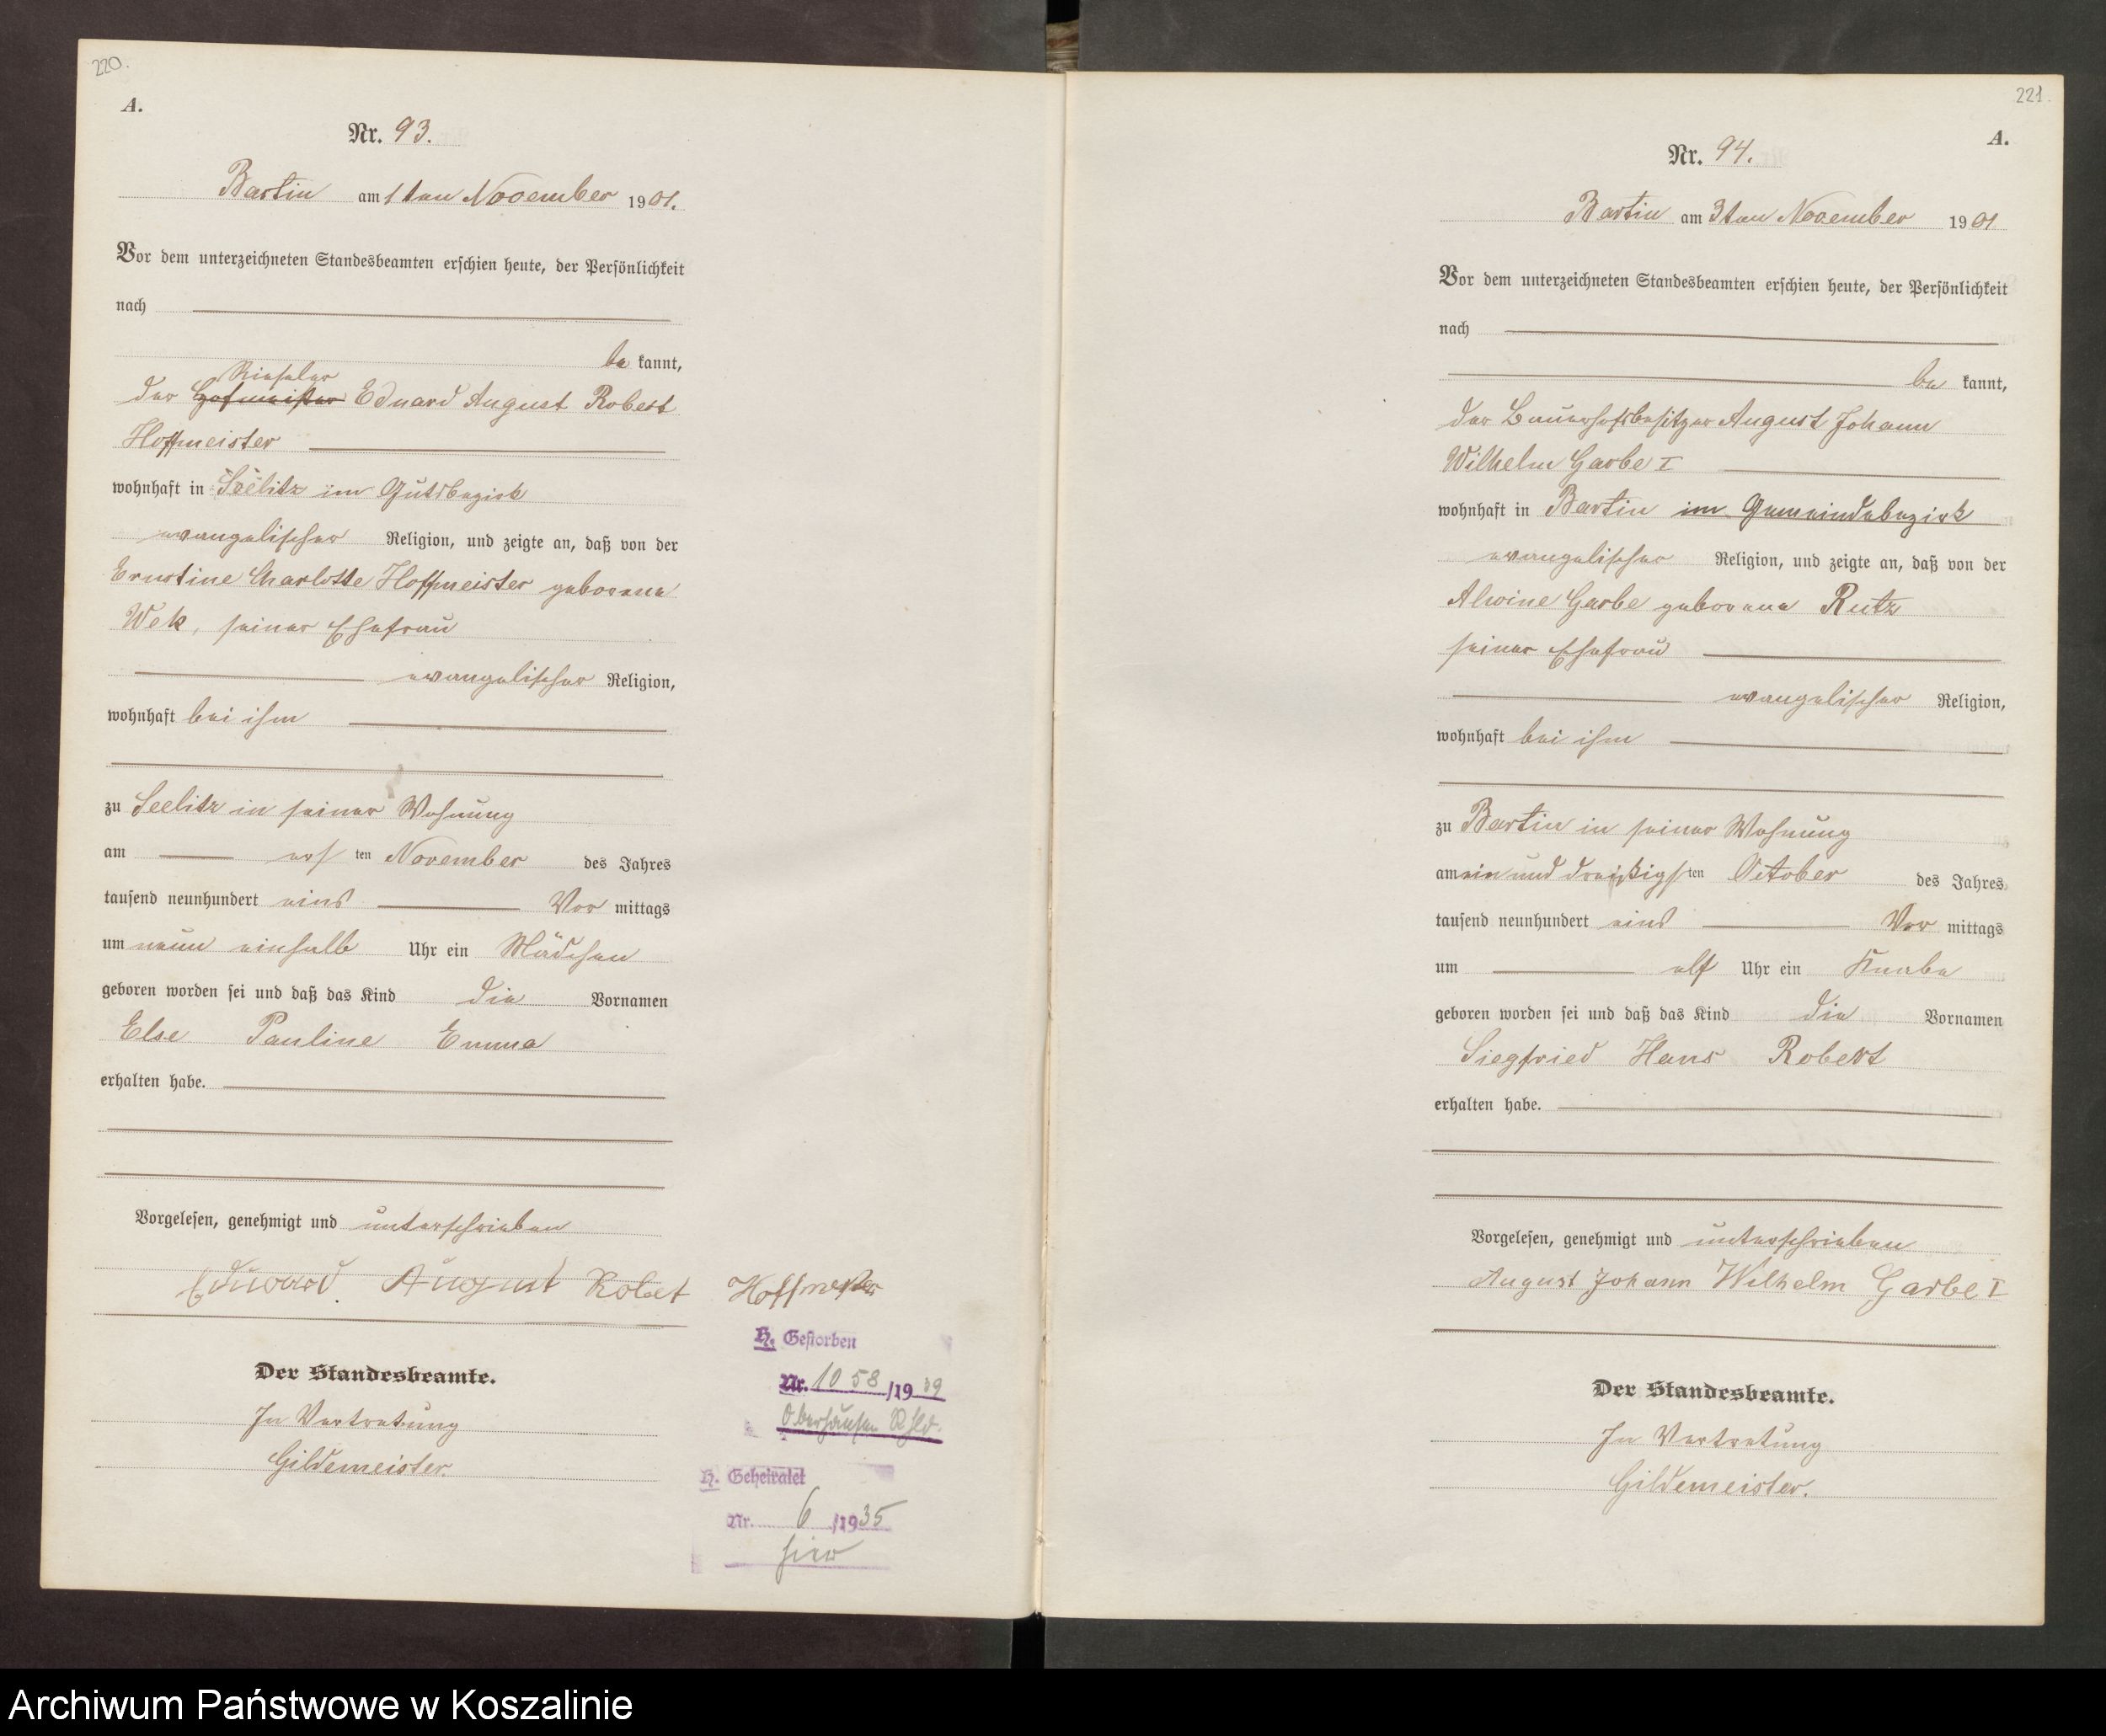 220.
A.
Nr. 93.
Bartin am 1ten November 1901.
Vor dem unterzeichneten Standesbeamten erschien heute, der Persönlichkeit
nach
be kannt,
Rieseler
der Hofmeister Eduard August Robert
Hoffmeister
wohnhaft in Seelitz im Gutsbezirk
evangelischer Religion, und zeigte an, daß von der
Ernstine Charlotte Hoffmeister geborene
Wek, seiner Ehefrau
evangelischer Religion,
wohnhaft bei ihm
zu Seelitz in seiner Wohnung
am ersten November des Jahres
tausend neunhundert eins Vor mittags
um neun einhalb Uhr ein Mädchen
geboren worden sei und daß das Kind die Vornamen
Else Pauline Emma
erhalten habe.
Vorgelesen, genehmigt und unterschrieben
Eduard August Robert Hoffmeister
H. Gestorben
Nr. 1058/1939
Oberhausen Rhld.
Der Standesbeamte.
In Vertretung
Gildemeister.
H. Geheiratet
Nr. 6/1935
hier
221.
A.
Nr. 94.
Bartin am 3ten November 1901
Vor dem unterzeichneten Standesbeamten erschien heute, der Persönlichkeit
nach
be kannt,
der Bauerhofsbesitzer August Johann
Wilhelm Garbe I
wohnhaft in Bartin im Gemeindebezirk
evangelischer Religion, und zeigte an, daß von der
Alwine Garbe geborene Rutz
seiner Ehefrau
evangelischer Religion,
wohnhaft bei ihm
zu Bartin in seiner Wohnung
am ein und dreißigsten October des Jahres
tausend neunhundert eins Vor mittags
um elf Uhr ein Knabe
geboren worden sei und daß das Kind die Vornamen
Siegfried Hans Robert
erhalten habe.
Vorgelesen, genehmigt und unterschrieben
August Johann Wilhelm Garbe I
Der Standesbeamte.
In Vertretung
Gildemeister.
Archiwum Państwowe w Koszalinie